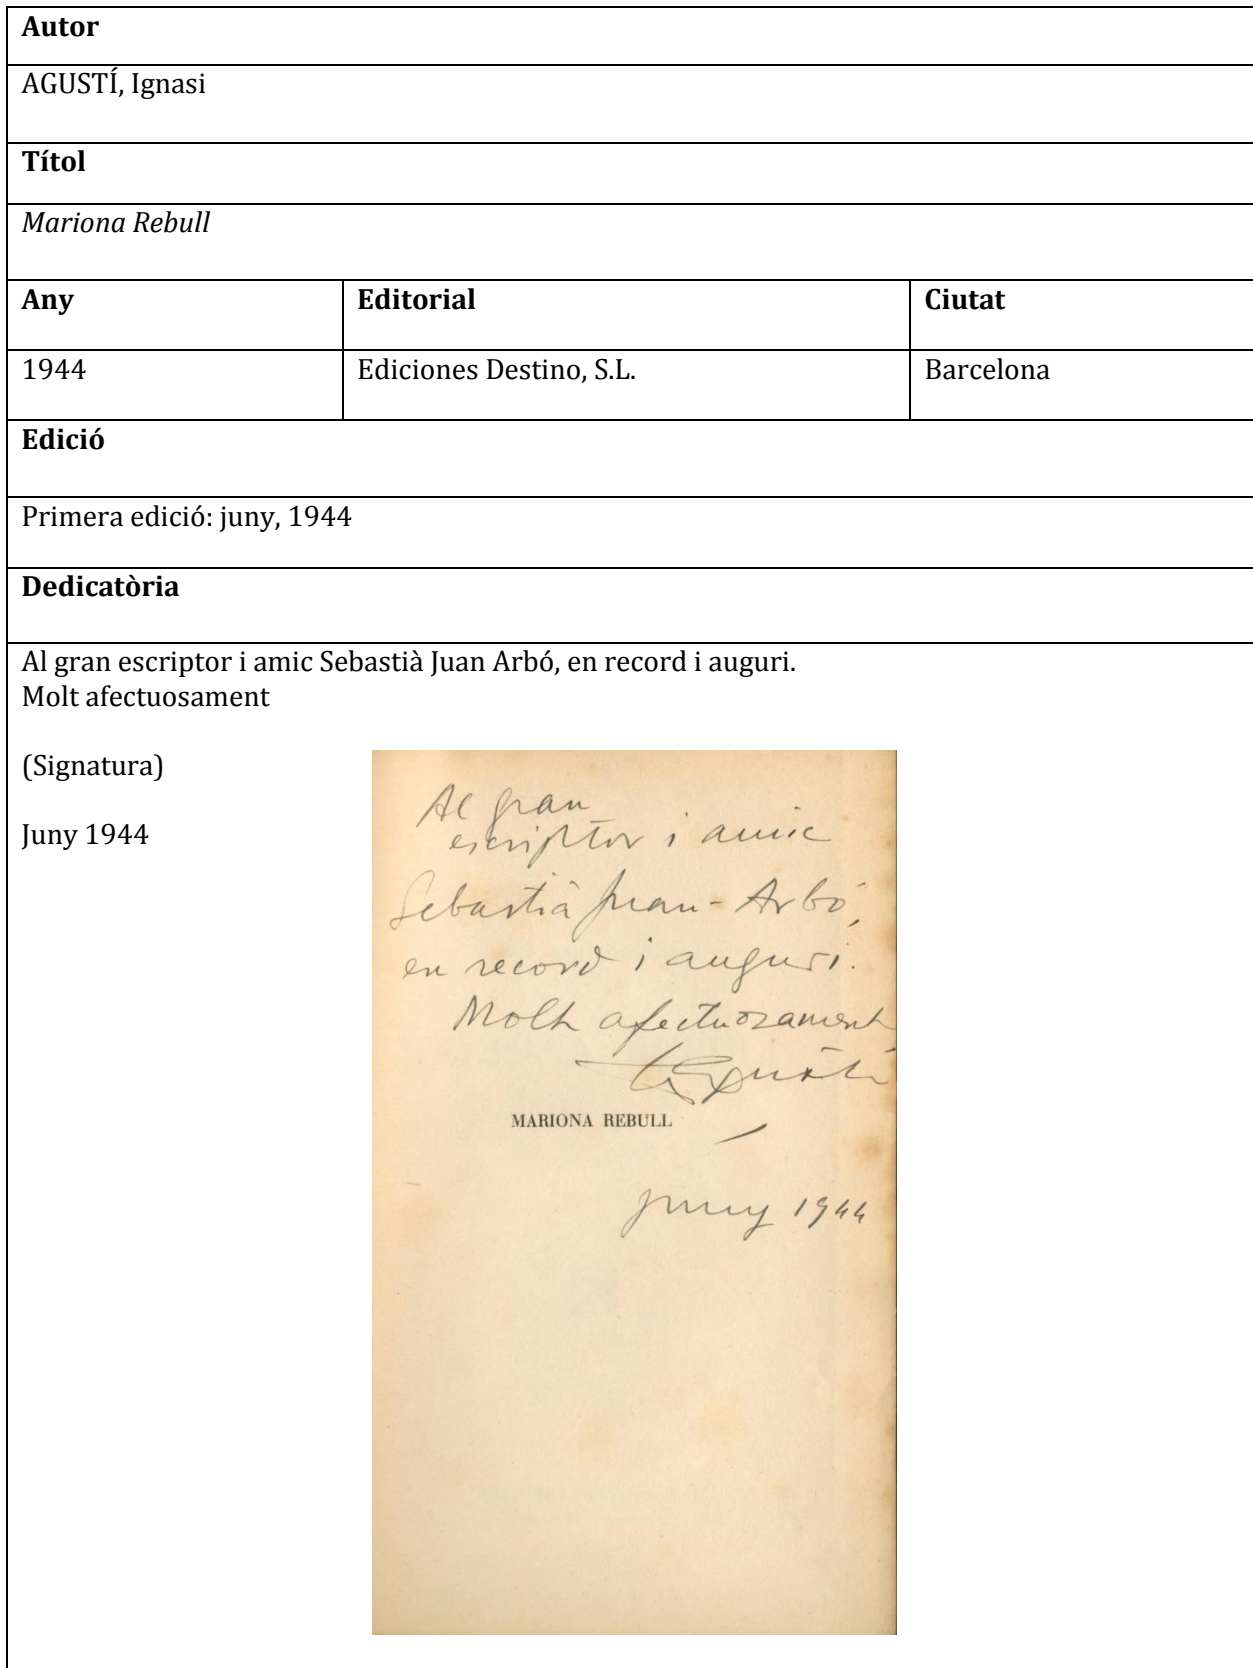 Autor
AGUSTÍ, Ignasi
Títol
Mariona Rebull
Any Editorial Ciutat
1944 Ediciones Destino, S.L. Barcelona
Edició
Primera edició: juny, 1944
Dedicatòria
Al gran escriptor i amic Sebastià Juan Arbó, en record i auguri.
Molt afectuosament
(Signatura)
Juny 1944
Al gran
escriptor i amic
Sebastià Juan-Arbó,
en record i auguri.
Molt afectuosament
Agustí
MARIONA REBULL
juny 1944